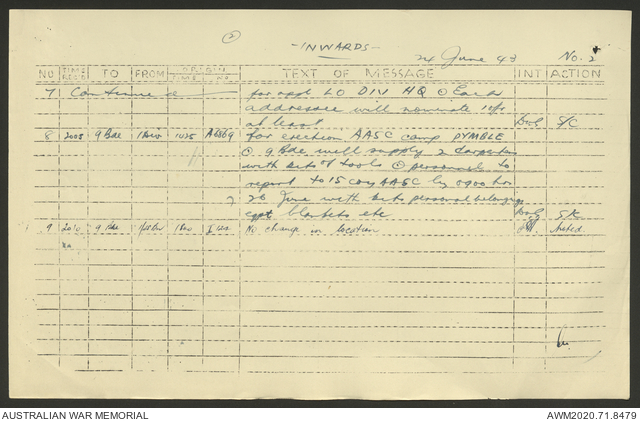 ②
-INWARDS-
24 June 43 No. 2
NO TIME REC'D TO FROM ORIGIN TIME NO. TEXT OF MESSAGE INT ACTION
7 Continued for appt LO DIV HQ ⊙ Each
addressee will nominate
at least S/C
8 2005 9 Bde 1 Div 1025 A6869 for erection AASC camp PYMBLE
⊙ 9 Bde will supply 2 carpenters
with sets of tools ⊙ personnel to
report to 15 coy AASC by 0900 hrs
26 June with sets personal belongings
eqpt blankets etc S/C
9 2010 9 Bde 1800 No change in location Noted
AUSTRALIAN WAR MEMORIAL
AWM2020.71.8479